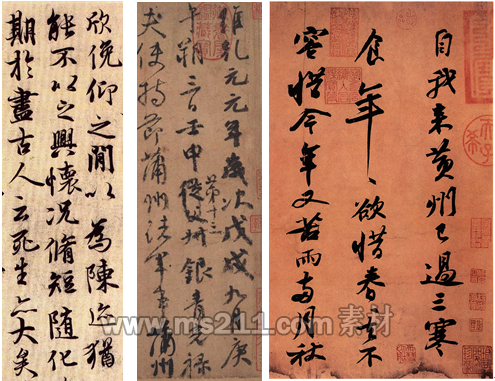 欣俛仰之閒以為陳迹猶
能不以之興懷況脩短隨化
期於盡古人云死生亦大矣
維乾元元年歲次戊戌九月庚
午朔三日壬申第十三叔銀青光祿
夫使持節蒲州諸軍事蒲州
自我來黃州已過三寒
食年〻欲惜春去不
容惜今年又苦雨兩月秋
www.ms211.com 素材